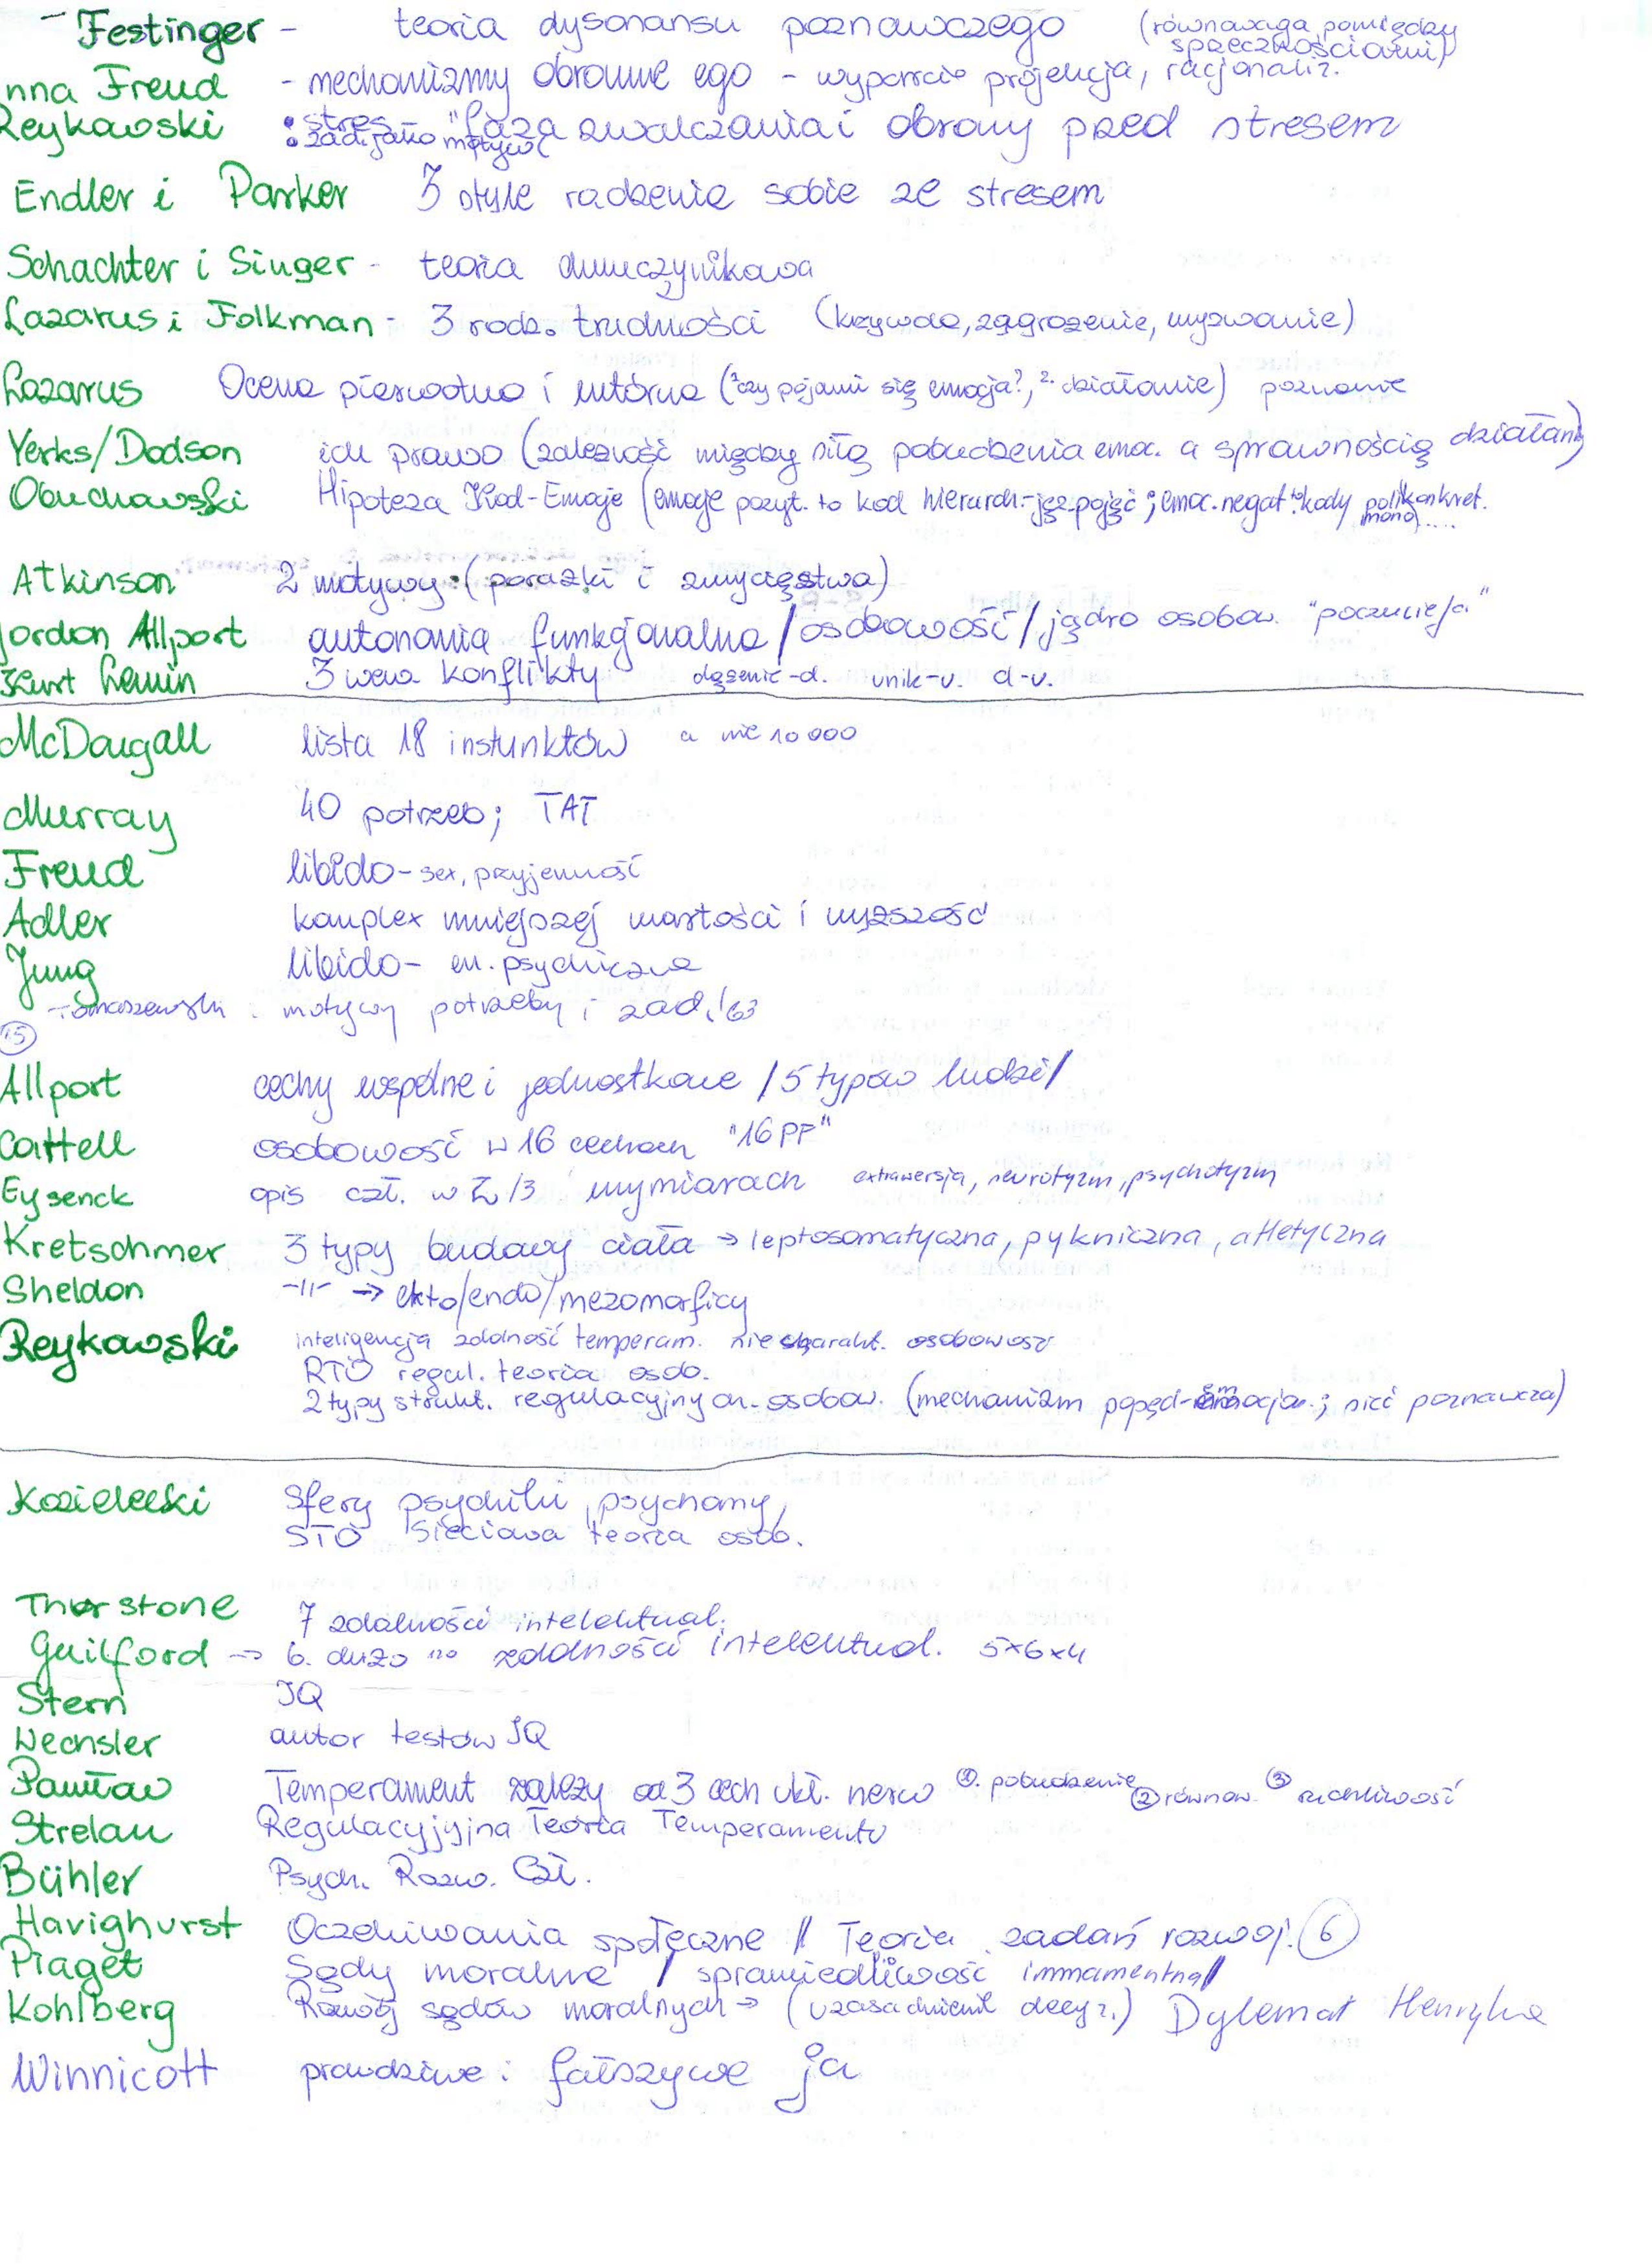 - Festinger - teoria dysonansu poznawczego (równowaga pomiędzy sprzecznościami)
nna Freud - mechanizmy obronne ego - wyparcie projekcja, racjonaliz.
Reykowski • stres "faza zwalczania i obrony przed stresem
• zad. jako motywy
Endler i Parker 3 style radzenia sobie ze stresem
Schachter i Singer - teoria dwuczynnikowa
Lazarus i Folkman - 3 rodz. trudności (krzywda, zagrożenie, wyzwanie)
Lazarus Ocena pierwotna i wtórna (1. czy pojawi się emocja?, 2. działanie) poznanie
Yerks/Dodson ich prawo (zależność między siłą pobudzenia emoc. a sprawnością działań)
Obuchowski Hipoteza Kod-Emocje (emocje pozyt. to kod hierarch.-jęz.pojęć; emoc.negat. to kody polikonkret.
mono....
Atkinson 2 motywy: (porażki i zwycięstwa)
Gordon Allport autonomia funkcjonalna / osobowość / jądro osobow. "poczucie ja"
Kurt Lewin 3 wew konflikty dążenie-d. unik-u. d-u.
McDougall lista 18 instynktów a nie 10 000
Murray 40 potrzeb; TAT
Freud libido - sex, przyjemność
Adler komplex mniejszej wartości i wyższość
Jung libido - en. psychiczna
Tomaszewski : motywy potrzeby i zad. '63
15
Allport cechy wspólne i jednostkowe / 5 typów ludzi /
Cattell osobowość w 16 cechach "16 PF"
Eysenck opis czł. w 2/3 wymiarach extrawersja, neurotyzm, psychotyzm
Kretschmer 3 typy budowy ciała → leptosomatyczna, pykniczna, atletyczna
Sheldon -II- → ekto/endo/mezomorficy
Reykowski inteligencja zdolność temperam. nie charakt. osobowość
RTO regul. teoria osob.
2 typy strukt. regulacyjnych osobow. (mechanizm popęd-emocjon.; sieć poznawcza)
Kozielecki Sfery psychiki, psychomy,
STO Sieciowa teoria osob.
Thurstone 7 zdolności intelektual.
Guilford → b. dużo no zdolności intelektual. 5×6×4
Stern IQ
Wechsler autor testów IQ
Pawłow Temperament zależy od 3 cech ukł. nerw ①. pobudzenie ② równow. ③ ruchliwość
Strelau Regulacyjyjna Teoria Temperamentu
Bühler Psych. Rozw. Czł.
Havighurst Oczekiwania społeczne // Teoria zadań rozwoj. ⑥
Piaget Sądy moralne / sprawiedliwość immamentna/
Kohlberg Rozwój sądów moralnych → (uzasadnienie decyz.) Dylemat Henryka
Winnicott prawdziwe i fałszywe ja